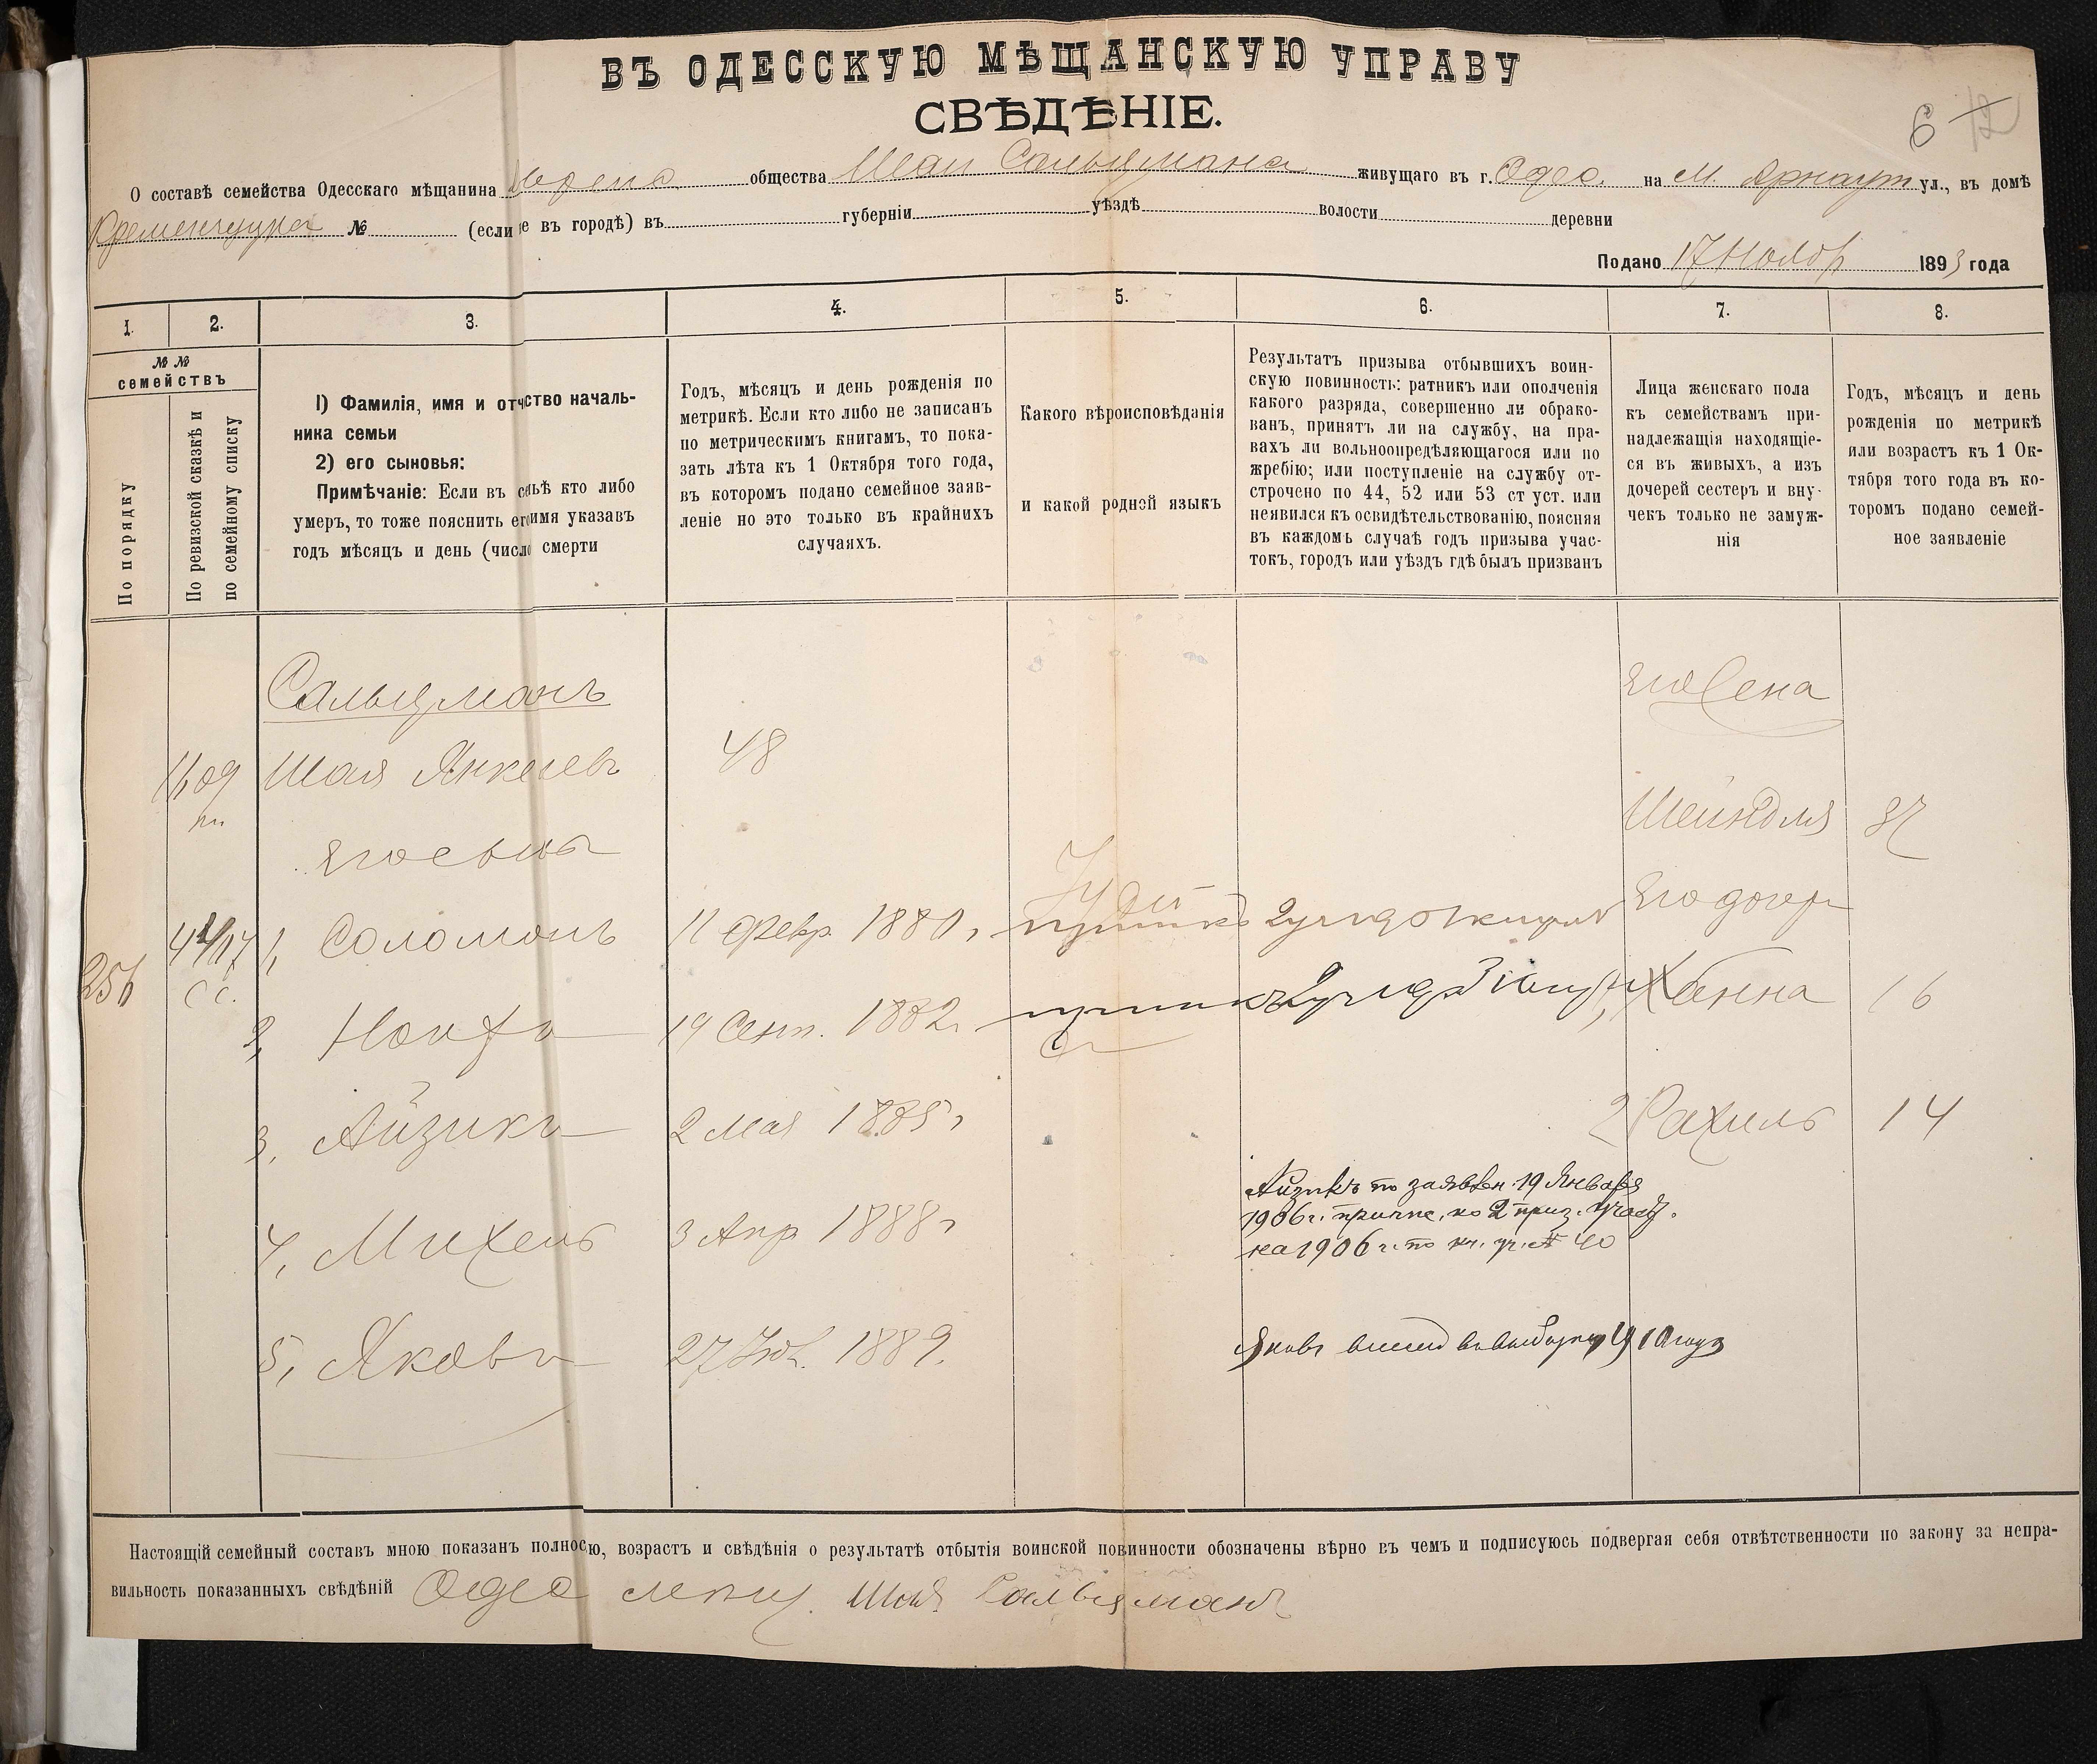 ВЪ ОДЕССКУЮ МѢЩАНСКУЮ УПРАВУ
СВѢДѢНІЕ.
6 12
О составѣ семейства Одесскаго мѣщанина Еврейс. общества Шаи Сальцмана живущаго въ г. Одес. на М. Арнаут ул., въ домѣ
Кременчуцка № (если не въ городѣ) въ губерніи уѣздѣ волости деревни
Подано 17 Ноябр 1893 года
1. 2. 3. 4. 5. 6. 7. 8.
№ №
семействъ
По порядку
По ревизской сказкѣ и
по семейному списку
1) Фамилія, имя и отчство началь-
ника семьи
2) его сыновья:
Примѣчаніе: Если въ семьѣ кто либо
умеръ, то тоже пояснить его имя указавъ
годъ мѣсяцъ и день (число смерти
Годъ, мѣсяцъ и день рожденія по
метрикѣ. Если кто либо не записанъ
по метрическимъ книгамъ, то пока-
зать лѣта къ 1 Октября того года,
въ которомъ подано семейное заяв-
леніе но это только въ крайнихъ
случаяхъ.
Какого вѣроисповѣданія
и какой родной языкъ
Результатъ призыва отбывшихъ воин-
скую повинность: ратникъ или ополченія
какого разряда, совершенно ли обрако-
ванъ, принятъ ли на службу, на пра-
вахъ ли вольноопредѣляющагося или по
жребію; или поступленіе на службу от-
строчено по 44, 52 или 53 ст уст. или
неявился къ освидѣтельствованію, поясняя
въ каждомъ случаѣ годъ призыва учас-
токъ, городъ или уѣздъ гдѣ былъ призванъ
Лица женскаго пола
къ семействамъ при-
надлежащія находящіе-
ся въ живыхъ, а изъ
дочерей сестеръ и вну-
чекъ только не замуж-
нія
Годъ, мѣсяцъ и день
рожденія по метрикѣ
или возрастъ къ 1 Ок-
тября того года въ ко-
торомъ подано семей-
ное заявленіе
Сальцманъ
Его Жена
Шая Янкелевъ 48
Шейндля 37
Его сынов
Его дочер
1, Соломонъ 11 Февр. 1880,
Іудей
256
2, 19 Сент. 1882г.
1, Ханна 16
3, Айзикъ 2 Мая 1885г
2 Рахиль 14
Айзикъ по заявлен. 19 Января
1906 г. причис. ко 2 приз. участ.
на 1906 г. по № 40
4, Михель 3 Апр 1888г
5, Яковъ 27 1889.
Яковъ 1910 года
Настоящій семейный составъ мною показанъ полносю, возрастъ и свѣдѣнія о результатѣ отбытія воинской повинности обозначены вѣрно въ чемъ и подписуюсь подвергая себя отвѣтственности по закону за непра-
вильность показанныхъ свѣдѣній Одес мѣщ. Шая Сальцманъ